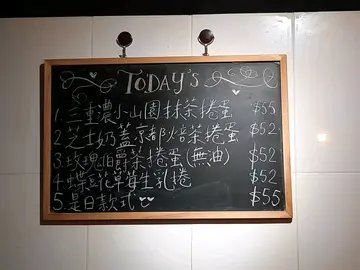 TODAY'S
1.三重濃小山園抹茶捲蛋 $55
2.芝士奶蓋京都焙茶捲蛋 $52
3.玫瑰伯爵茶捲蛋(無油) $52
4.蝶豆花草莓生乳捲 $52
5.是日款式 $55